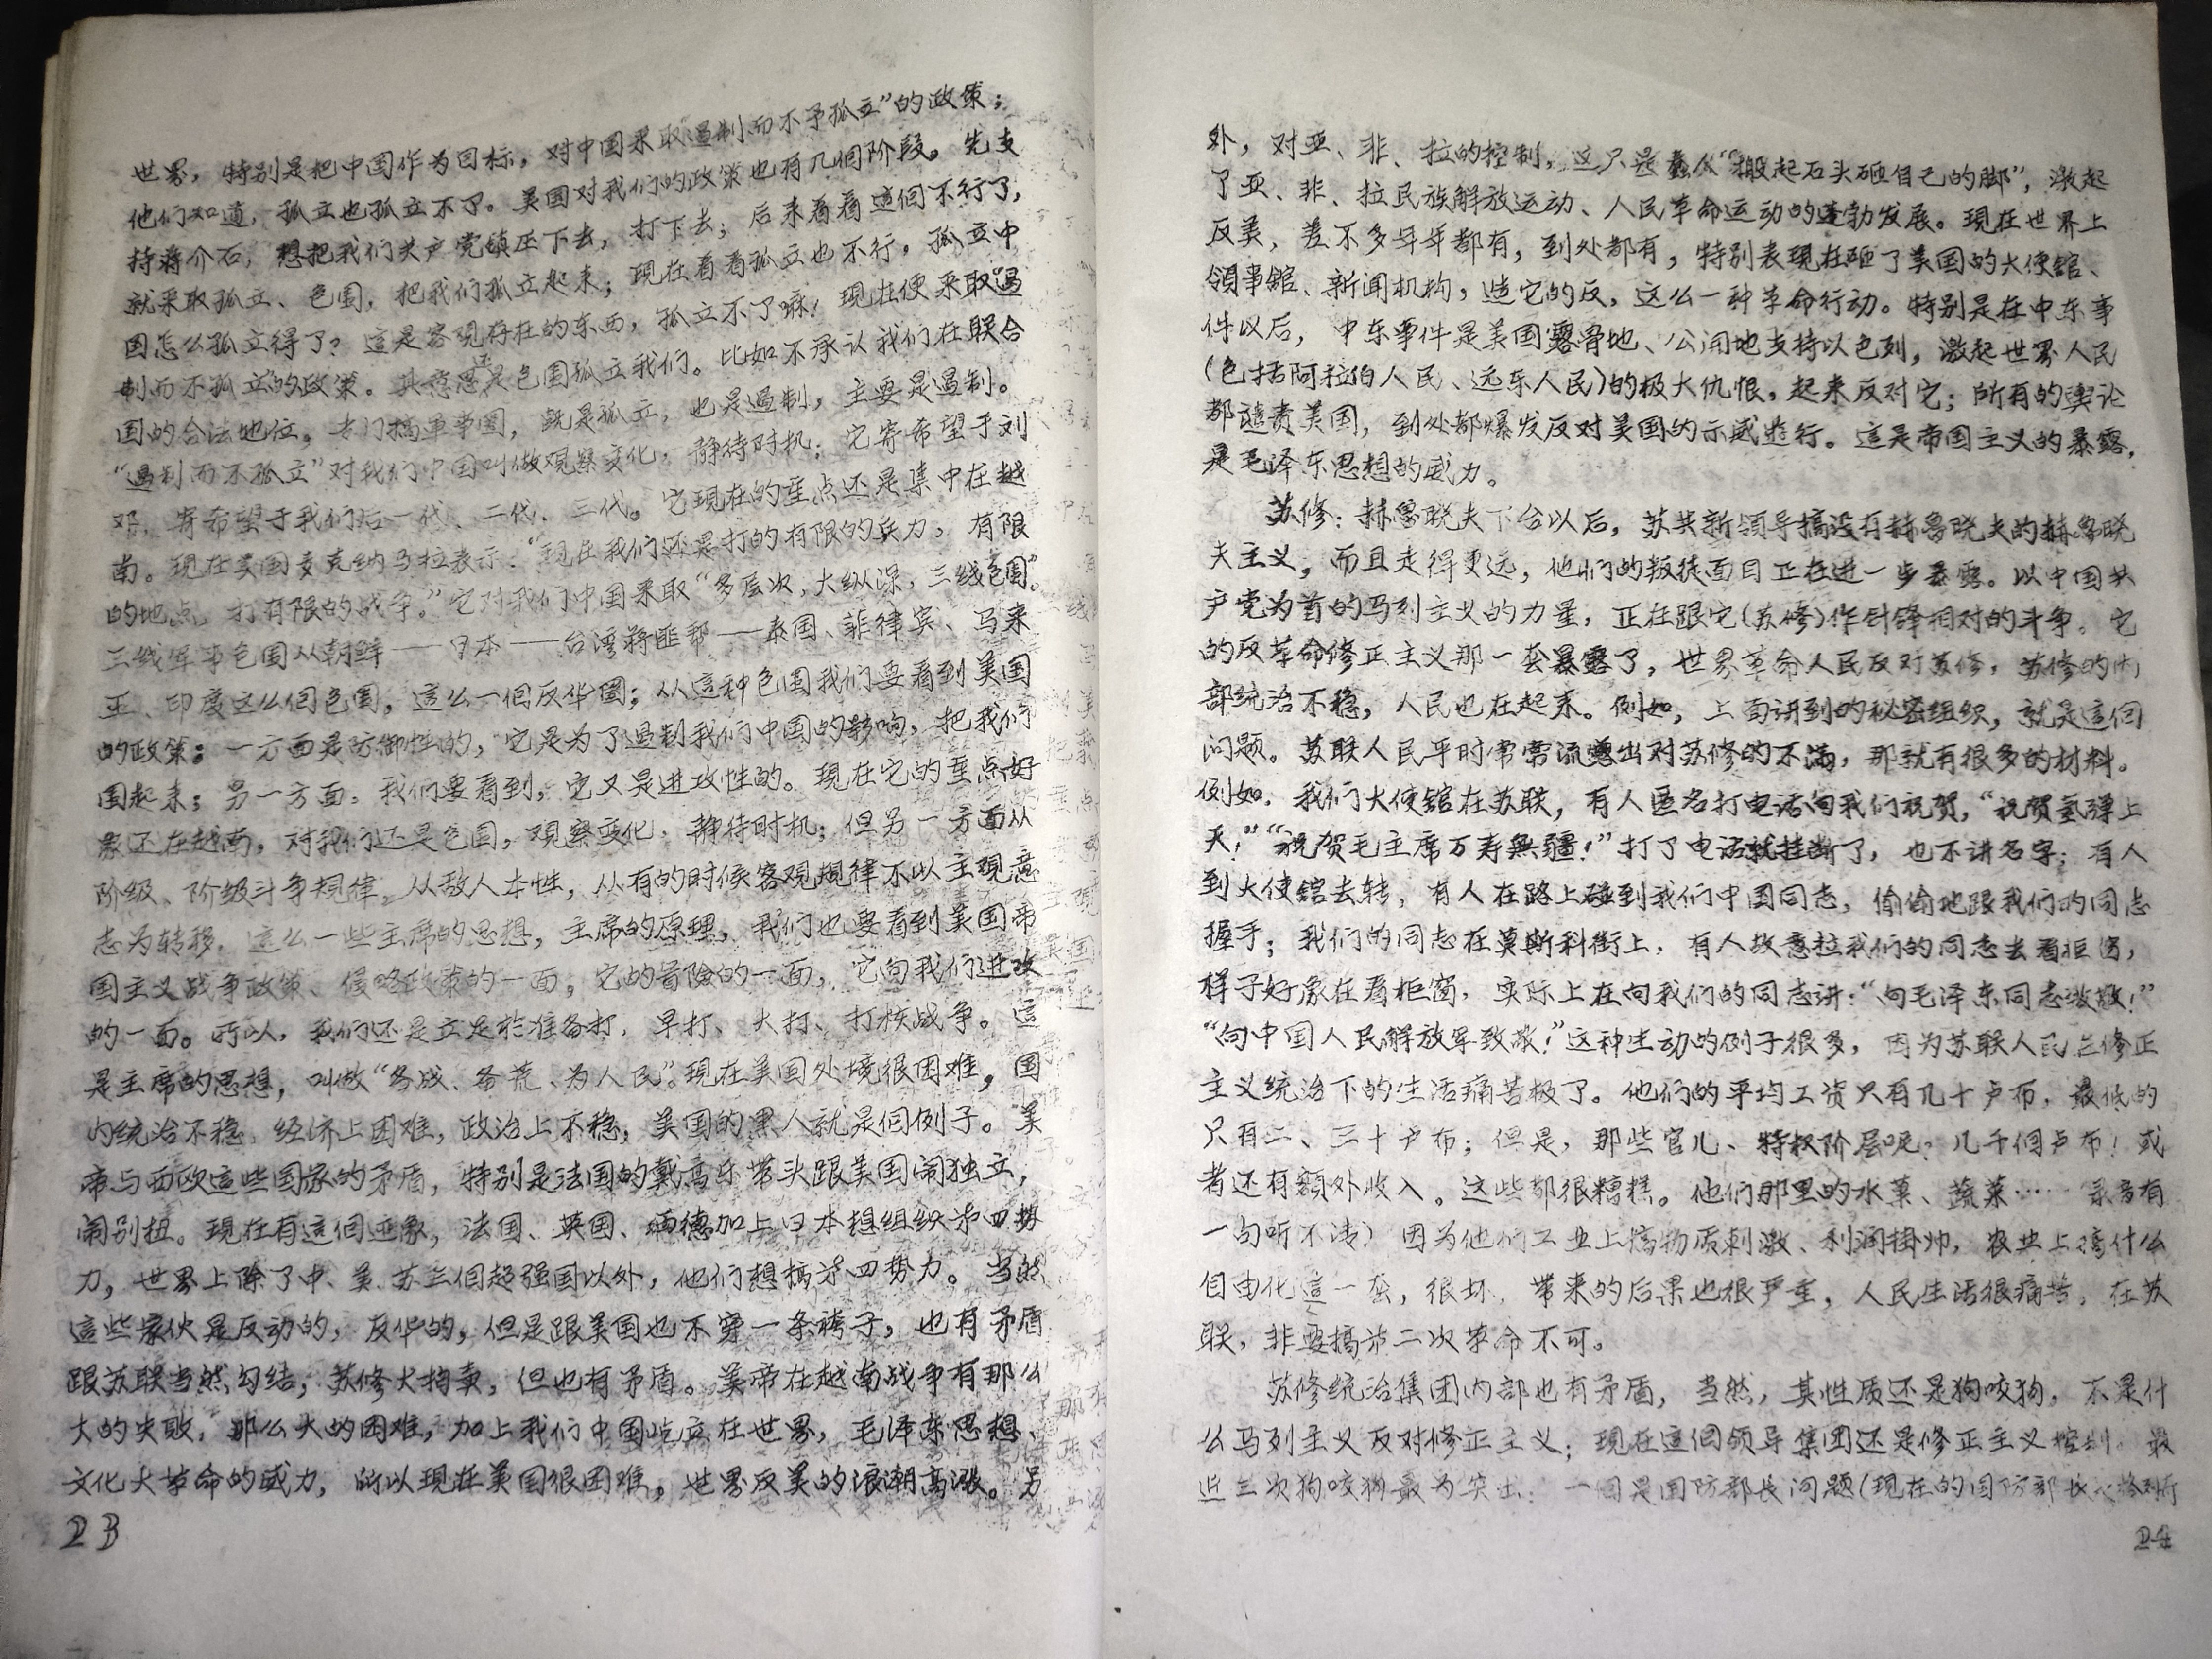 世界，特别是把中国作为目标，对中国采取“遏制而不予孤立”的政策；
他们知道，孤立也孤立不了。美国对我们的政策也有几個阶段。先支
持蒋介石，想把我们共产党镇压下去，打下去；后来看着這個不行了，
就采取孤立、包围，把我们孤立起来；现在看着孤立也不行。孤立中
国怎么孤立得了？這是客观存在的东西，孤立不了嘛！现在便采取遏
制而不孤立的政策。其意思还是包围孤立我们。比如不承认我们在联合
国的合法地位。专门搞軍事圈，既是孤立，也是遏制，主要是遏制。
“遏制而不孤立”对我们中国叫做观察变化，静待时机；它寄希望于刘
邓，寄希望于我们后一代、二代、三代。它现在的重点还是集中在越
南。现在美国麦克纳马拉表示：“现在我们还是打的有限的兵力，有限
的地点，打有限的战争。”它对我们中国采取“多层次，大纵深，三线包围”。
三线军事包围从朝鲜——日本——台湾蒋匪帮——泰国、菲律宾、马来
亚、印度这么個包围，這么一個反华圈；从這种包围我们要看到美国
的政策：一方面是防御性的，它是为了遏制我们中国的影响，把我们
围起来；另一方面，我们要看到，它又是进攻性的。现在它的重点好
象还在越南，对我们还是包围，观察变化，静待时机；但另一方面从
阶级、阶级斗争规律，从敌人本性，从有的时候客观規律不以主现意
志为转移，這么一些主席的思想，主席的原理，我们也要看到美国帝
国主义战争政策、侵略政策的一面，它的冒險的一面，它向我们进攻
的一面。所以，我们还是立足於准备打，早打、大打、打核战争。這
是主席的思想，叫做“备战、备荒、为人民”。现在美国处境很困难，国
内统治不稳，经济上困难，政治上不稳，美国的黑人就是個例子。美
帝与西欧這些国家的矛盾，特别是法国的戴高乐带头跟美国闹独立，
闹别扭。现在有這個迹象，法国、英国、西德加上日本想组织第四势
力，世界上除了中、美、苏三個超强国以外，他们想搞第四势力。当然
這些家伙是反动的，反华的，但是跟美国也不穿一条褲子，也有矛盾
跟苏联当然勾结，苏修大拍卖，但也有矛盾。美帝在越南战争有那么
大的失败，那么大的困难，加上我们中国屹立在世界，毛泽东思想、
文化大革命的威力，所以现在美国很困难，世界反美的浪潮高漲。另
23
外，对亚、非、拉的控制，这只是蠢人“搬起石头砸自己的脚”，激起
了亚、非、拉民族解放运动、人民革命运动的蓬勃发展。现在世界上
反美，差不多年年都有，到处都有，特别表现在砸了美国的大使馆、
領事館、新闻机构，造它的反，这么一种革命行动。特别是在中东事
件以后，中东事件是美国露骨地、公開地支持以色列，激起世界人民
(包括阿拉伯人民、远东人民)的极大仇恨，起来反对它；所有的舆论
都谴责美国，到处都爆发反对美国的示威遊行。這是帝国主义的暴露，
是毛泽东思想的威力。
苏修：赫鲁晓夫下台以后，苏共新領导搞没有赫鲁晓夫的赫鲁晓
夫主义，而且走得更远，他们的叛徒面目正在进一步暴露。以中国共
产党为首的马列主义的力量，正在跟它(苏修)作针锋相对的斗争。它
的反革命修正主义那一套暴露了，世界革命人民反对苏修，苏修的内
部统治不稳，人民也在起来。例如，上面讲到的秘密组织，就是這個
问题。苏联人民平时常常流露出对苏修的不满，那就有很多的材料。
例如，我们大使馆在苏联，有人匿名打电话向我们祝贺，“祝贺氢弹上
天！”“祝贺毛主席万寿無疆！”打了电话就挂断了，也不讲名字；有人
到大使馆去转，有人在路上碰到我们中国同志，偷偷地跟我们的同志
握手；我们的同志在莫斯科街上，有人故意拉我们的同志去看柜窗，
样子好象在看柜窗，实际上在向我们的同志讲：“向毛泽东同志致敬！”
“向中国人民解放军致敬！”这种生动的例子很多，因为苏联人民在修正
主义统治下的生活痛苦极了。他们的平均工资只有几十卢布，最低的
只有二、三十卢布；但是，那些官儿、特权阶层呢？几千個卢布！或
者还有额外收入。这些都很糟糕。他们那里的水菓、蔬菜…… 录音有
一句听不清) 因为他们工业上搞物质刺激、利润掛帅，农业上搞什么
自由化這一套，很坏，带来的后果也很严重，人民生活很痛苦，在苏
联，非要搞第二次革命不可。
苏修统治集团内部也有矛盾，当然，其性质还是狗咬狗，不是什
么马列主义反对修正主义；现在這個领导集团还是修正主义控制。最
近三次狗咬狗最为突出：一個是国防部长问题(现在的国防部长
24